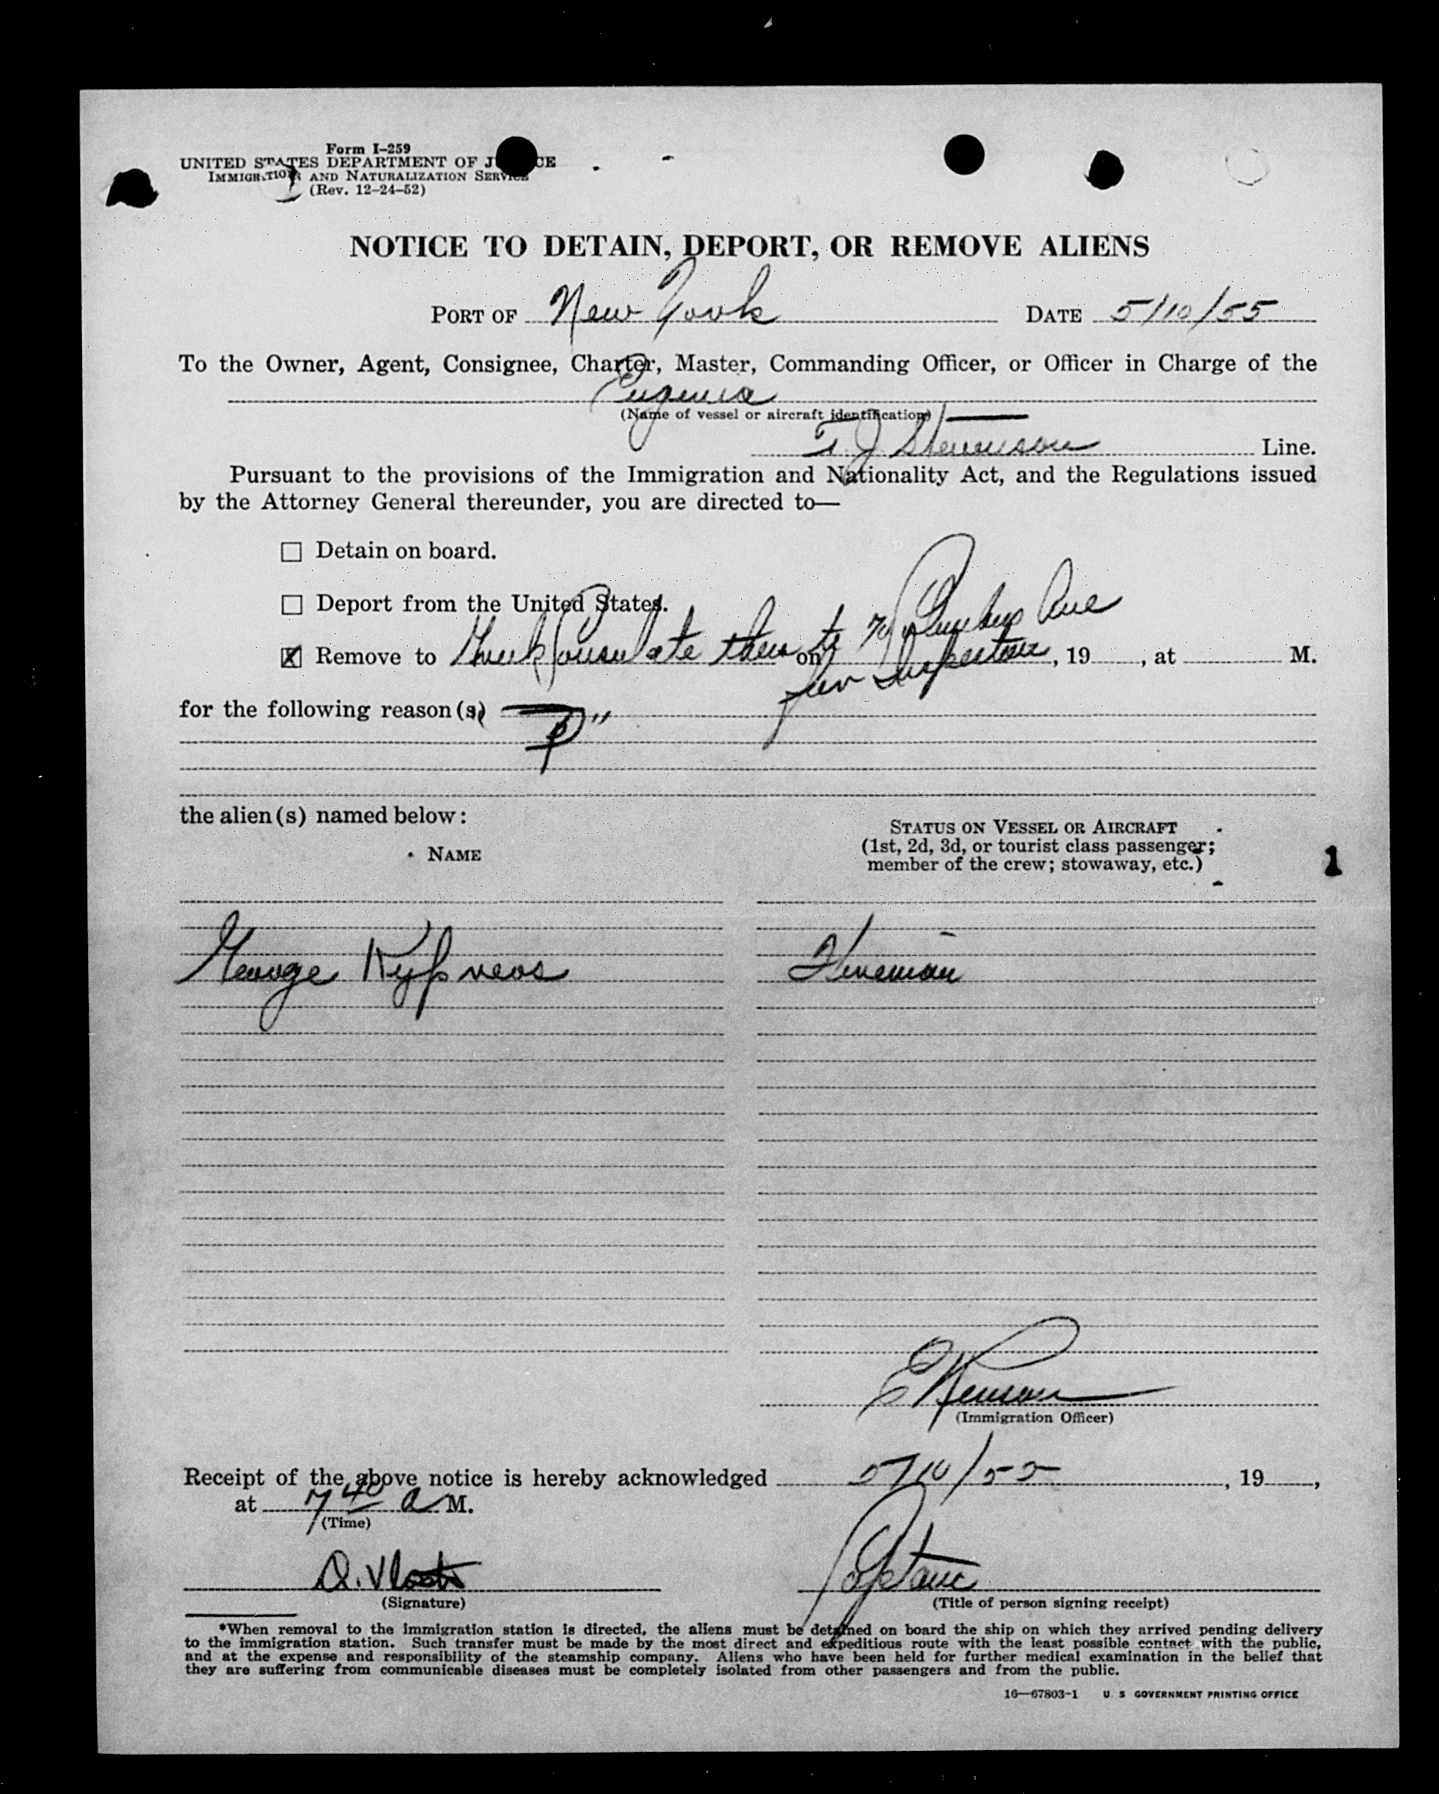 Form I-259
UNITED STATES DEPARTMENT OF JUSTICE
IMMIGRATION AND NATURALIZATION SERVICE
(Rev. 12-24-52)
NOTICE TO DETAIN, DEPORT, OR REMOVE ALIENS
PORT OF New York DATE 5/10/55
To the Owner, Agent, Consignee, Charter, Master, Commanding Officer, or Officer in Charge of the
Eugenia
(Name of vessel or aircraft identification)
T. J. Stevenson Line.
Pursuant to the provisions of the Immigration and Nationality Act, and the Regulations issued
by the Attorney General thereunder, you are directed to—
☐ Detain on board.
☐ Deport from the United States.
☒ Remove to Greek Consulate then to 70 Columbus Ave
on for Inspection, 19 , at M.
for the following reason(s)
the alien(s) named below:
NAME
STATUS ON VESSEL OR AIRCRAFT
(1st, 2d, 3d, or tourist class passenger;
member of the crew; stowaway, etc.)
1
George Kypreos Fireman
(Immigration Officer)
Receipt of the above notice is hereby acknowledged 5/10/55, 19 ,
at 7 40 a M.
(Time)
Captain
(Signature) (Title of person signing receipt)
*When removal to the immigration station is directed, the aliens must be detained on board the ship on which they arrived pending delivery
to the immigration station. Such transfer must be made by the most direct and expeditious route with the least possible contact with the public,
and at the expense and responsibility of the steamship company. Aliens who have been held for further medical examination in the belief that
they are suffering from communicable diseases must be completely isolated from other passengers and from the public.
16—67803-1 U S GOVERNMENT PRINTING OFFICE